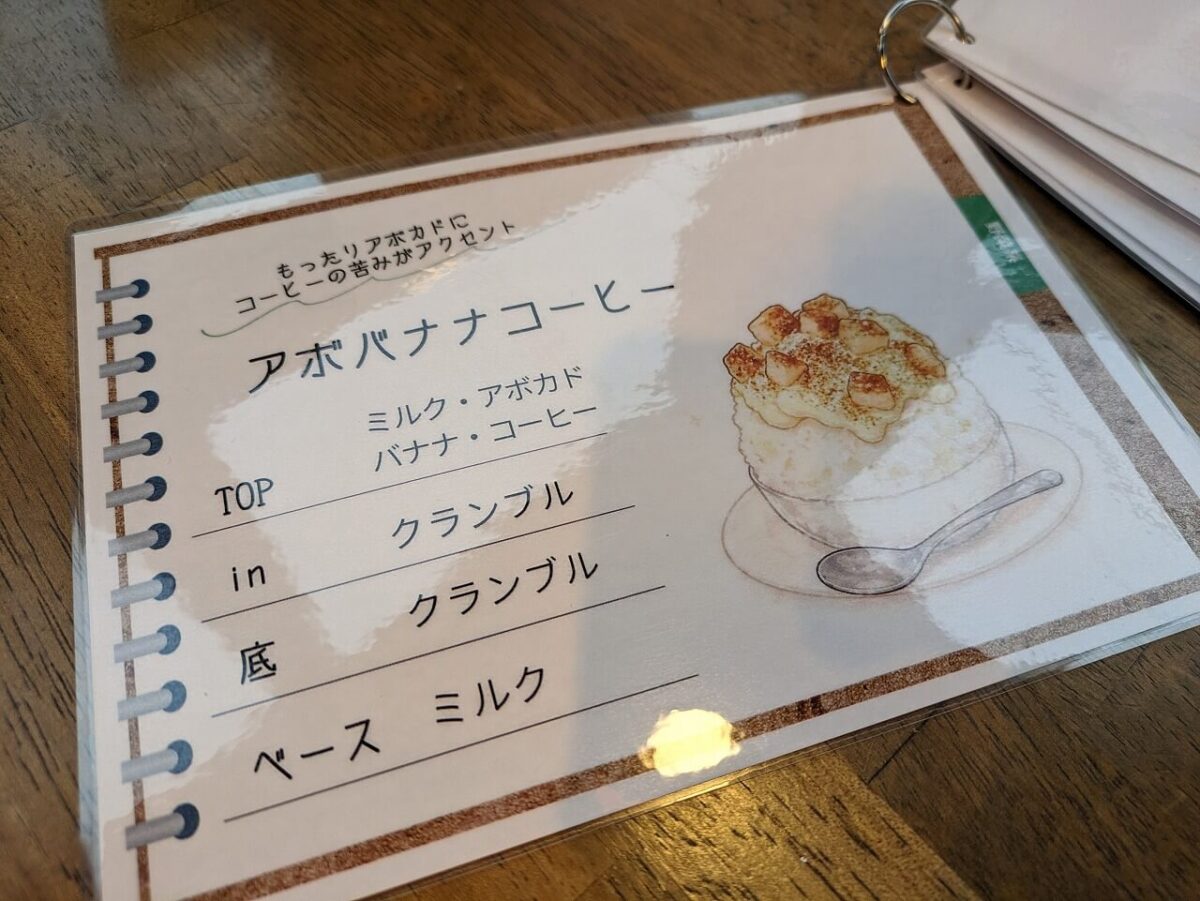 もったりアボカドに
コーヒーの苦みがアクセント
アボバナナコーヒー
ミルク・アボカド
バナナ・コーヒー
TOP
in クランブル
底 クランブル
ベース ミルク